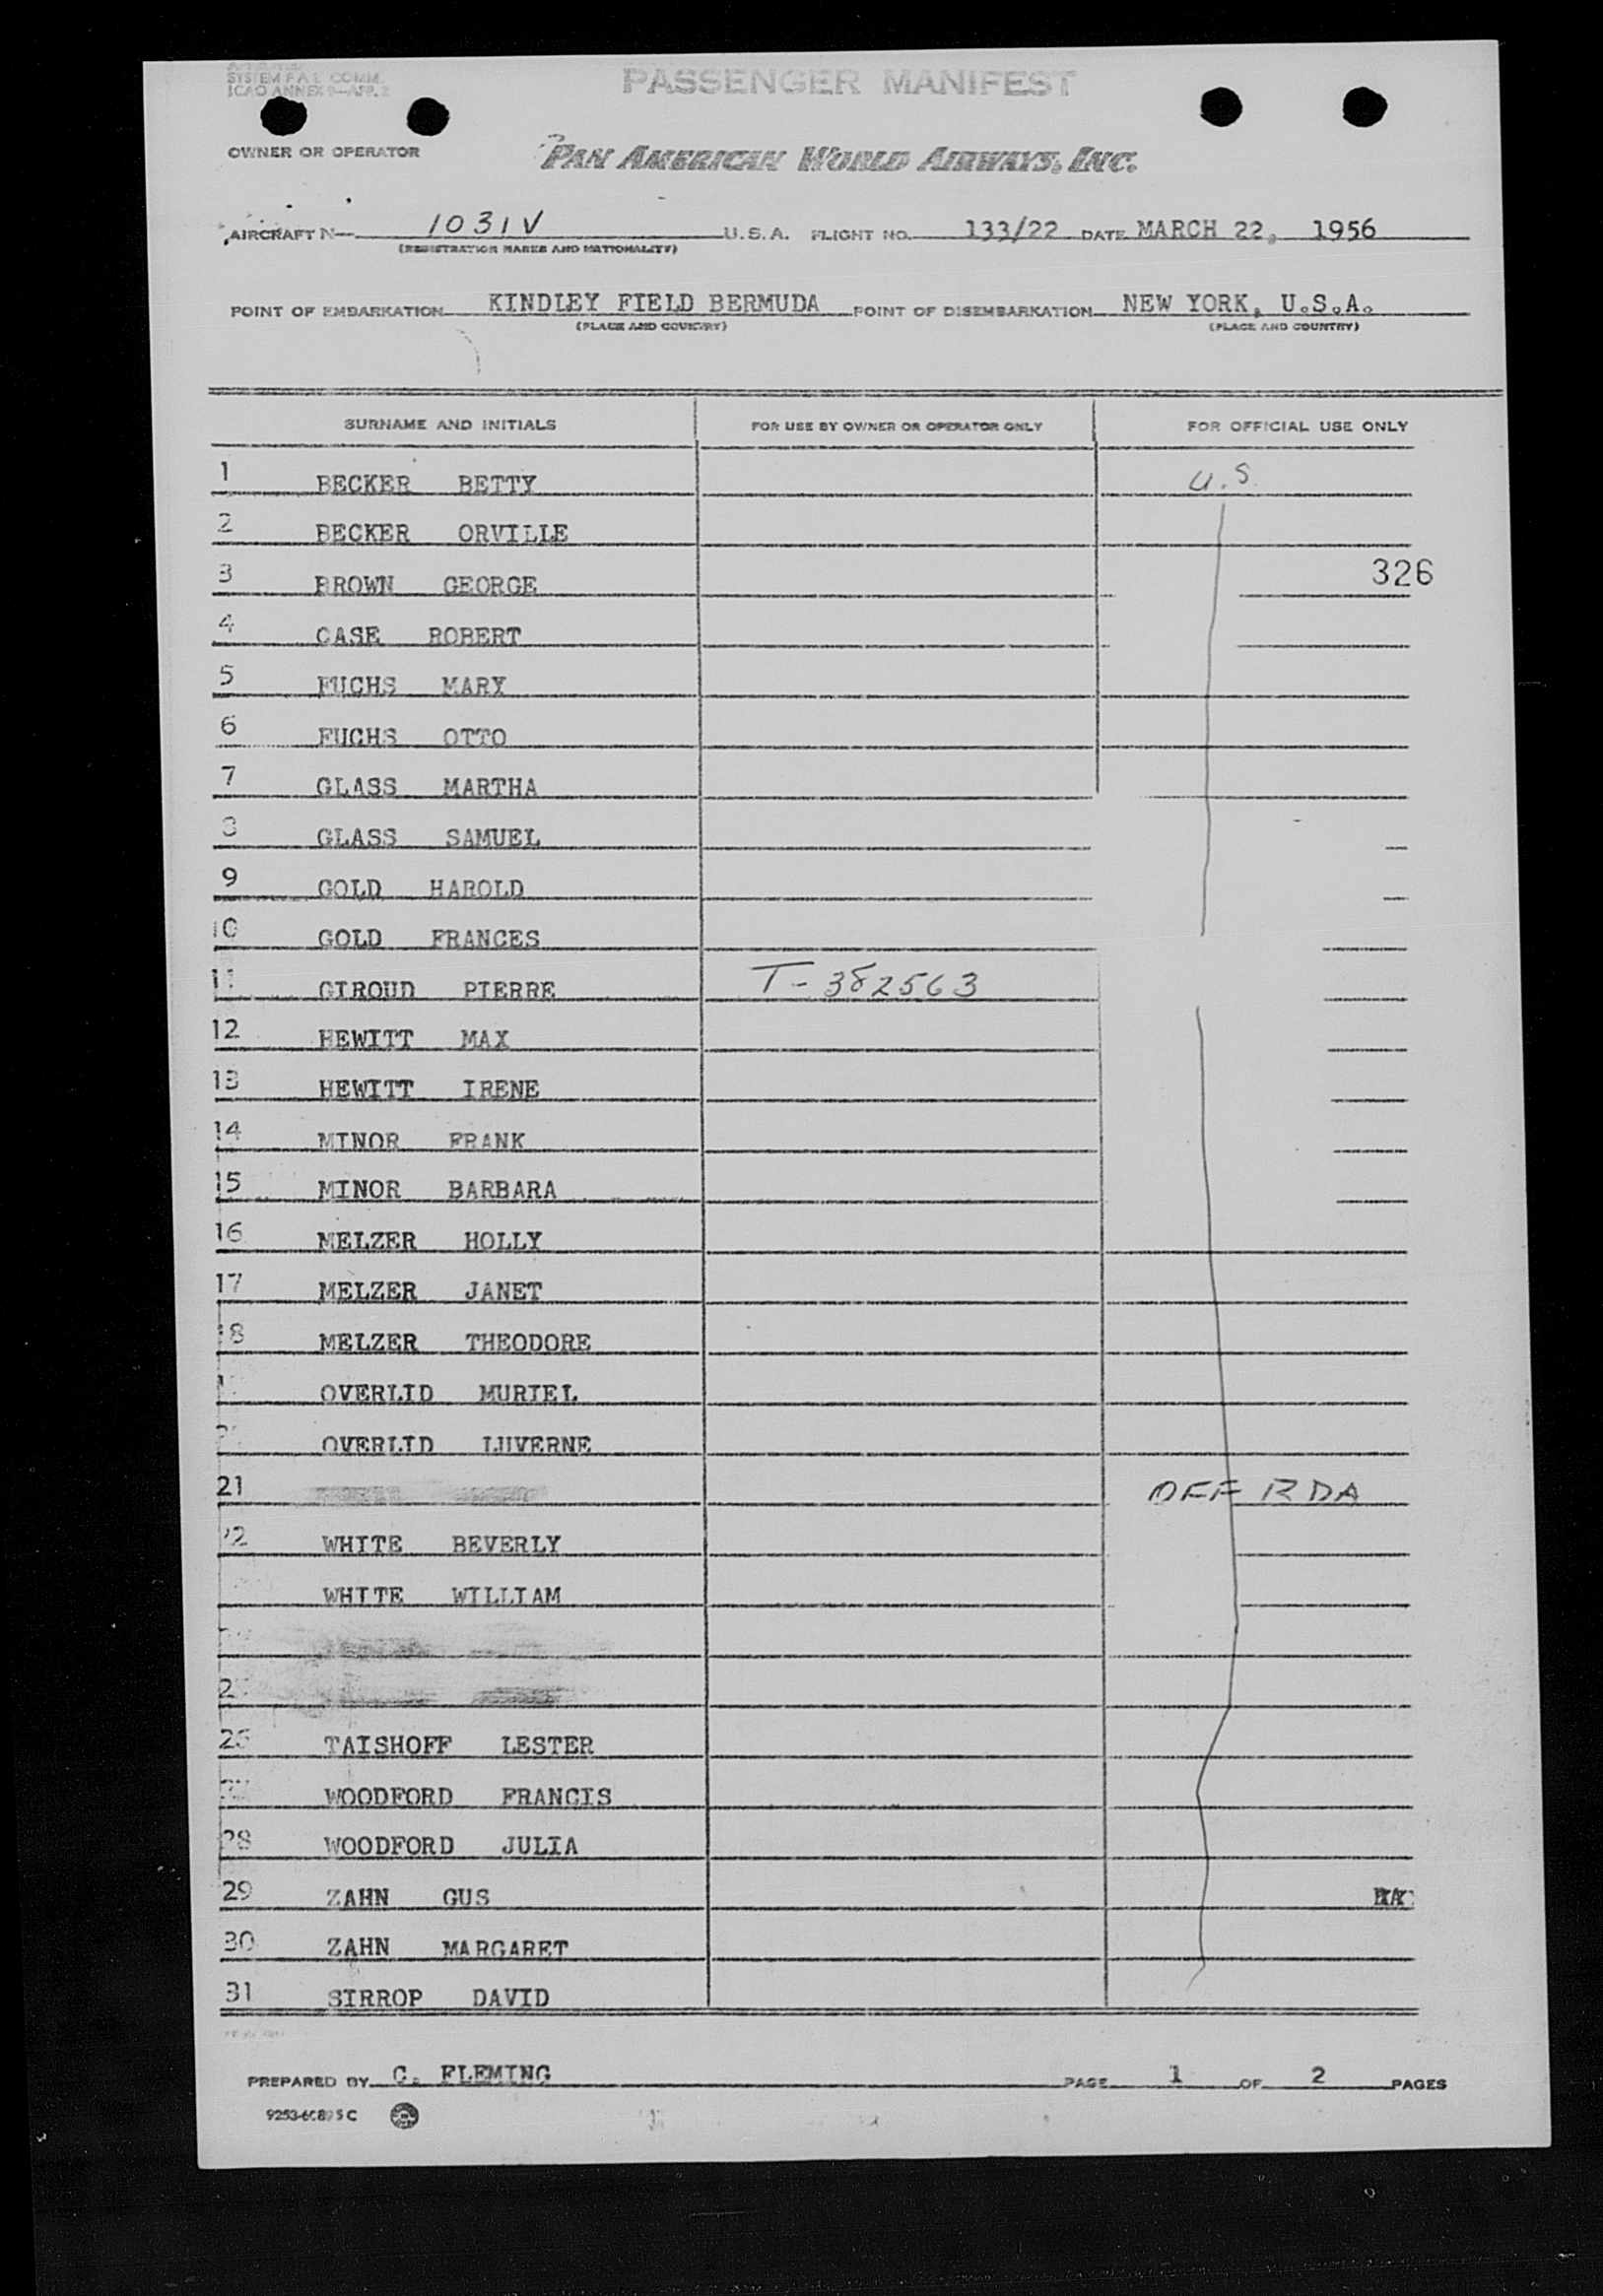 SYSTEM F A L COMM.
ICAO ANNEX 9—APP. 2
PASSENGER MANIFEST
OWNER OR OPERATOR
PAN AMERICAN WORLD AIRWAYS, INC.
AIRCRAFT N— 1031V U.S.A. FLIGHT NO. 133/22 DATE MARCH 22, 1956
(REGISTRATION MARKS AND NATIONALITY)
POINT OF EMBARKATION KINDLEY FIELD BERMUDA POINT OF DISEMBARKATION NEW YORK, U.S.A.
(PLACE AND COUNTRY) (PLACE AND COUNTRY)
SURNAME AND INITIALS FOR USE BY OWNER OR OPERATOR ONLY FOR OFFICIAL USE ONLY
1 BECKER BETTY U.S.
2 BECKER ORVILLE
3 BROWN GEORGE 326
4 CASE ROBERT
5 FUCHS MARY
6 FUCHS OTTO
7 GLASS MARTHA
8 GLASS SAMUEL
9 GOLD HAROLD
10 GOLD FRANCES
11 GIROUD PIERRE T-382563
12 HEWITT MAX
13 HEWITT IRENE
14 MINOR FRANK
15 MINOR BARBARA
16 MELZER HOLLY
17 MELZER JANET
18 MELZER THEODORE
OVERLID MURIEL
OVERLID LUVERNE
21 OFF BDA
22 WHITE BEVERLY
WHITE WILLIAM
26 TAISHOFF LESTER
WOODFORD FRANCIS
28 WOODFORD JULIA
29 ZAHN GUS
30 ZAHN MARGARET
31 SIRROP DAVID
PREPARED BY C. FLEMING PAGE 1 OF 2 PAGES